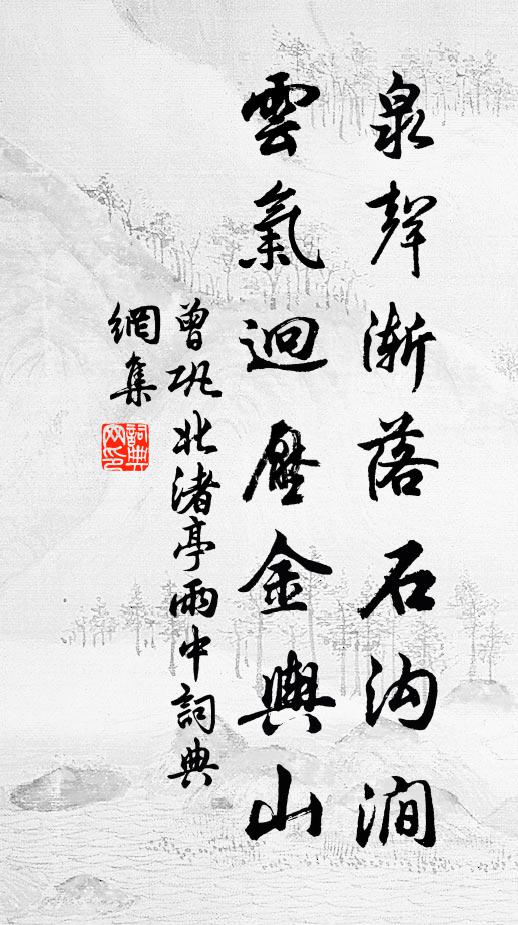 泉聲漸落石沟澗
雲氣迴壓金輿山
曾巩北渚亭雨中詞典
網集
詞典
网印